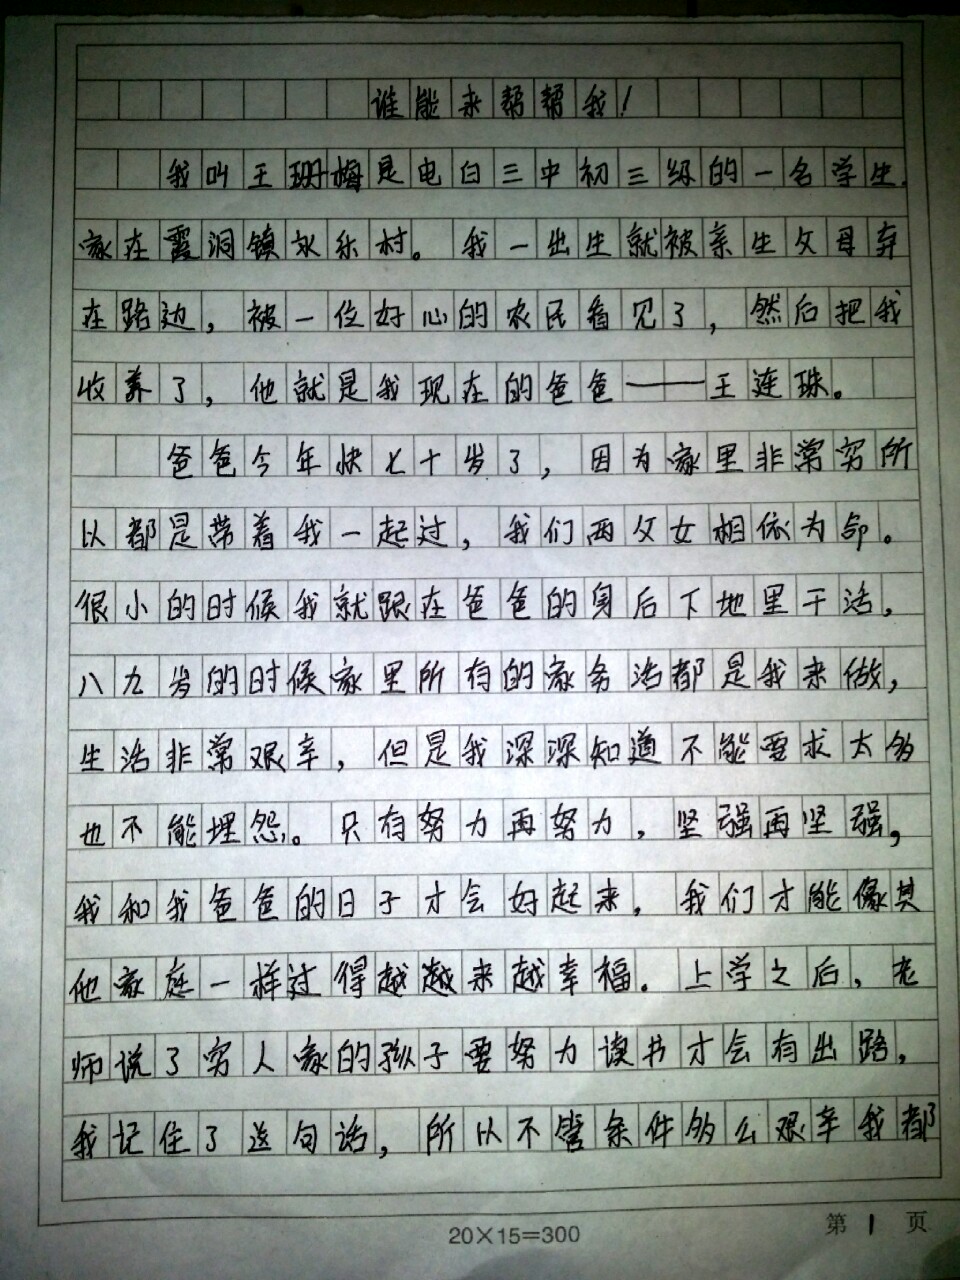 谁能来帮帮我!
我叫王珊梅是电白三中初三级的一名学生.
家在霞洞镇永乐村。我一出生就被亲生父母弃
在路边,被一位好心的农民看见了,然后把我
收养了,他就是我现在的爸爸——王连珠。
爸爸今年快七十岁了,因为家里非常穷所
以都是带着我一起过,我们两父女相依为命。
很小的时候我就跟在爸爸的身后下地里干活,
八九岁的时候家里所有的家务活都是我来做,
生活非常艰辛,但是我深深知道不能要求太多
也不能埋怨。只有努力再努力,坚强再坚强,
我和我爸爸的日子才会好起来,我们才能像其
他家庭一样过得越越来越幸福。上学之后,老
师说了穷人家的孩子要努力读书才会有出路,
我记住了这句话,所以不管条件多么艰辛我都
20×15=300
第 1 页